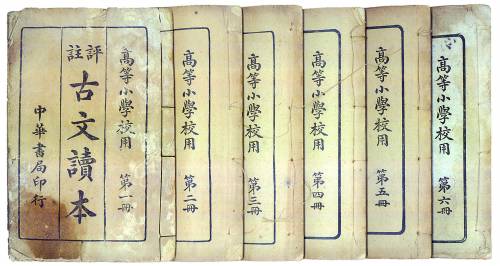 高等小學校用 第一冊
評註
古文讀本
中華書局印行
高等小學校用 第二冊
高等小學校用 第三冊
高等小學校用 第四冊
高等小學校用 第五冊
高等小學校用 第六冊